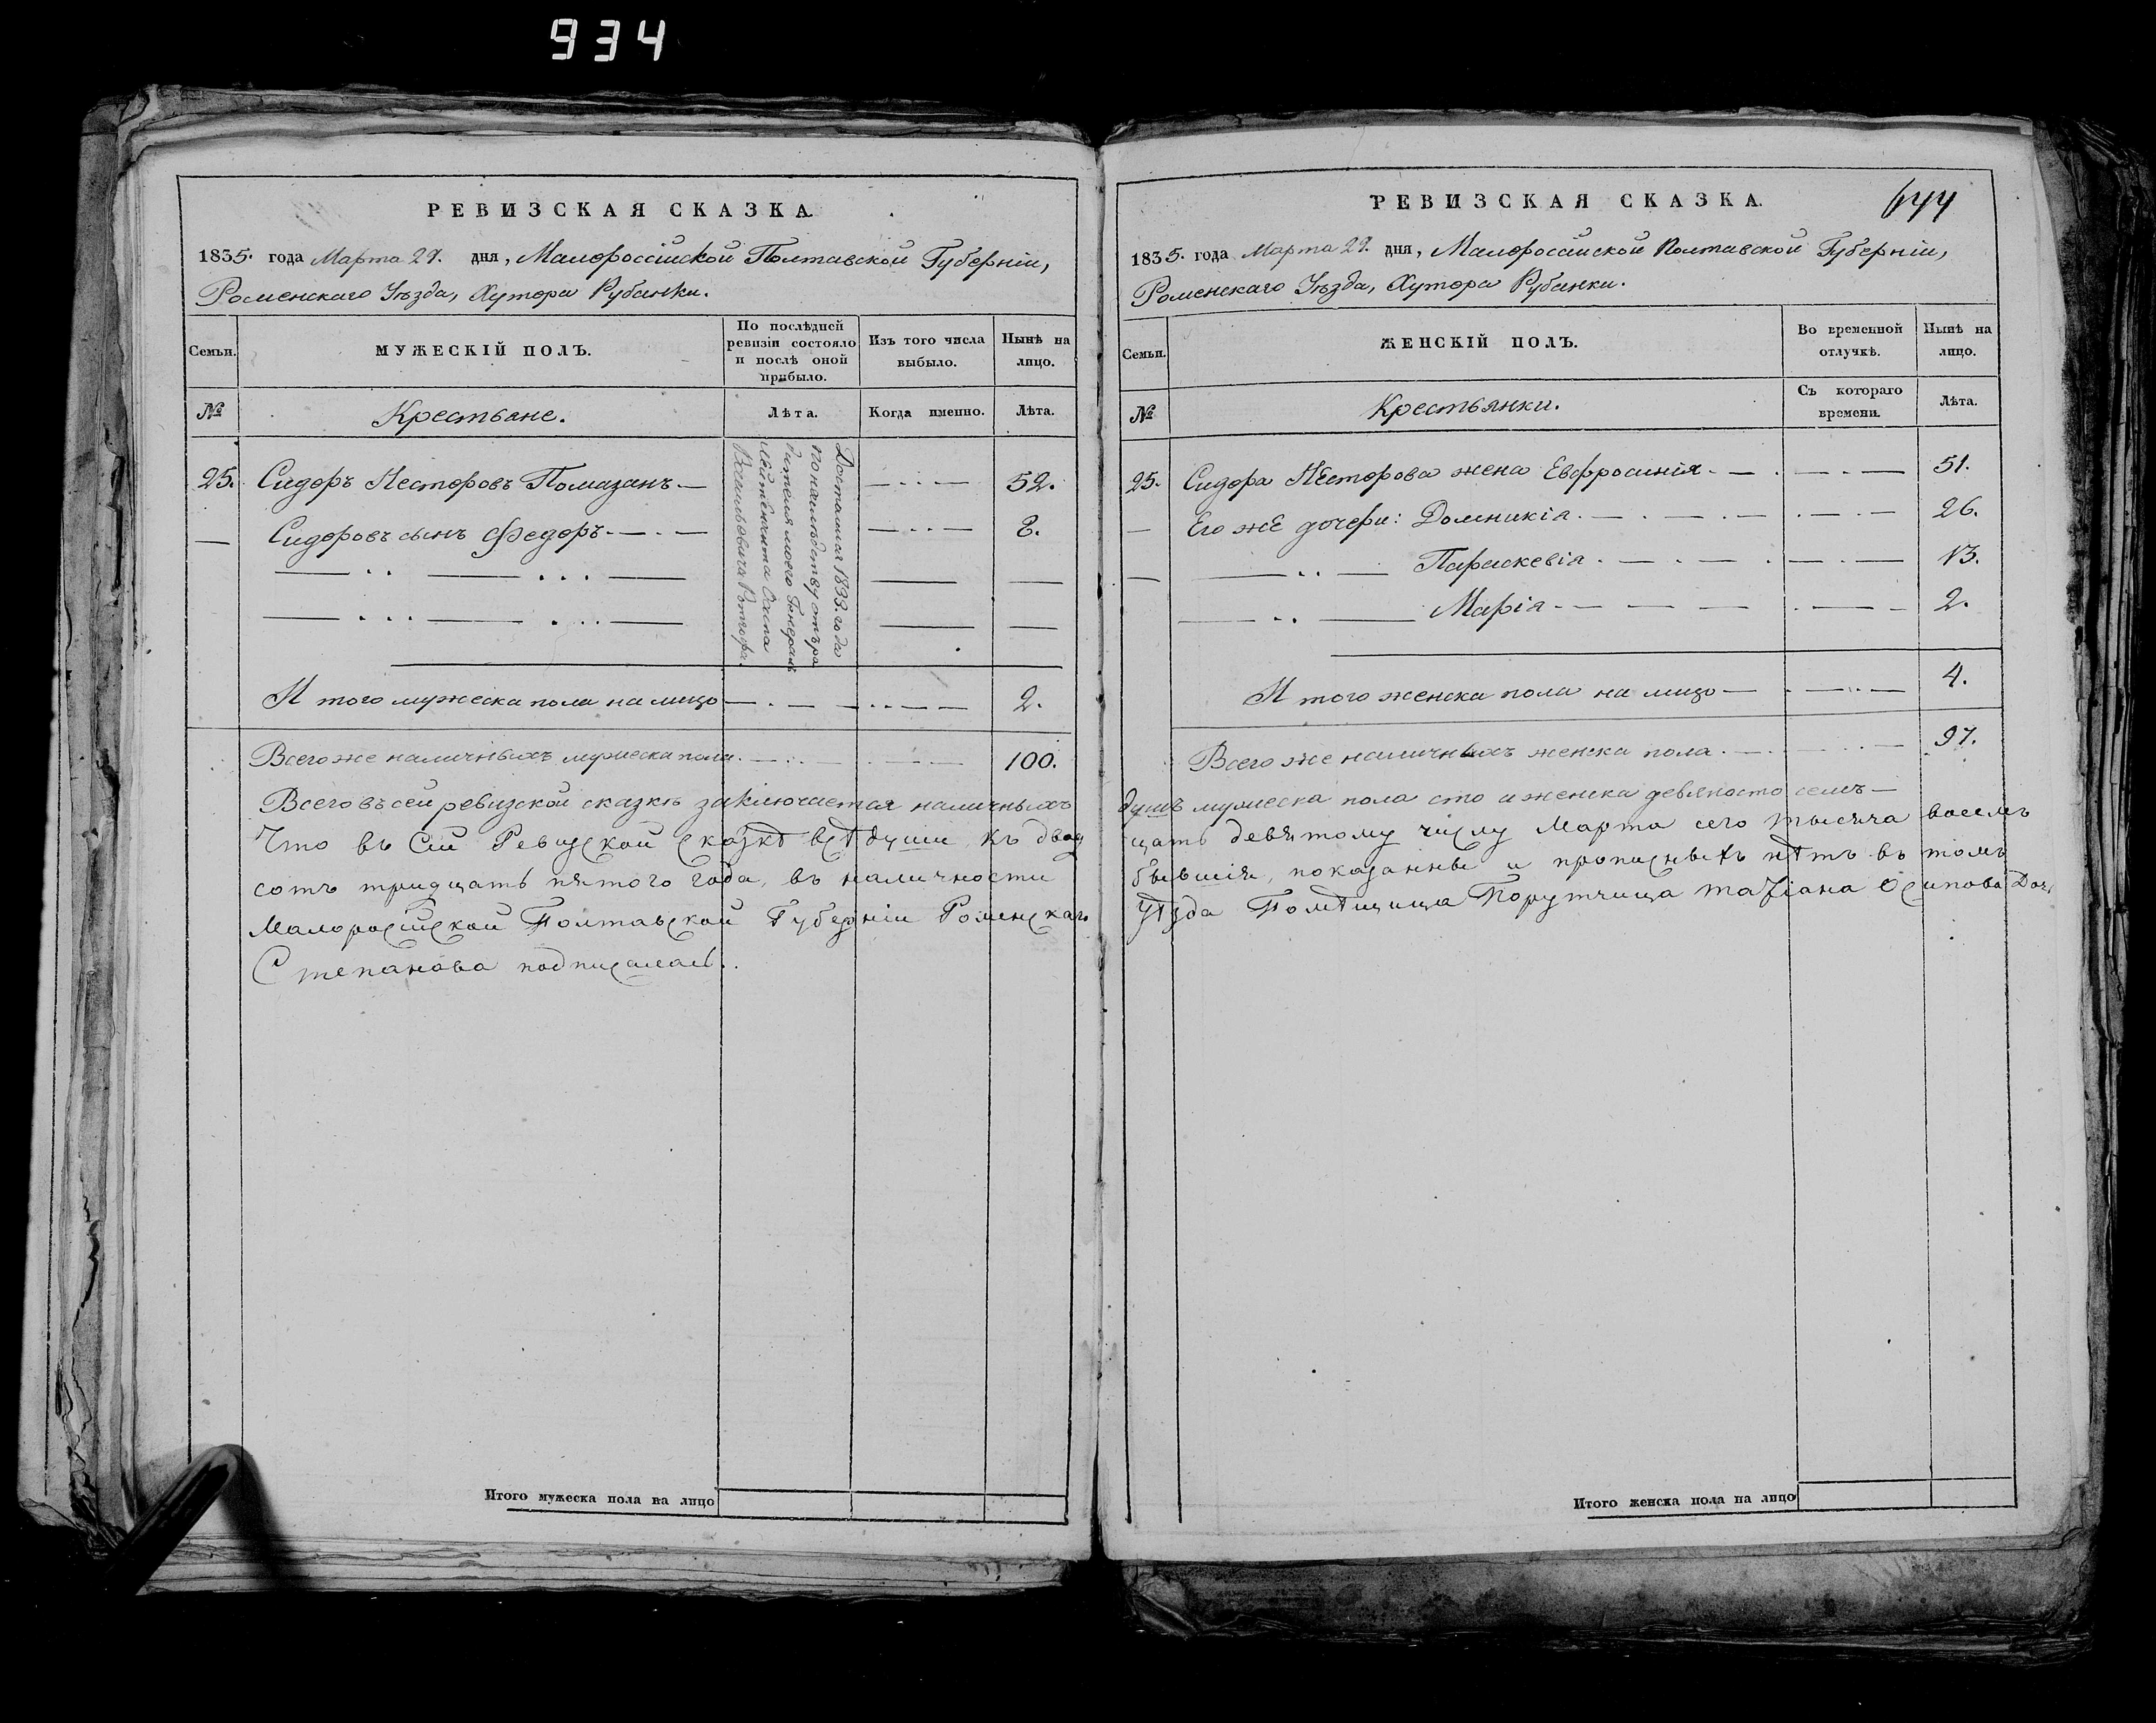 934
РЕВИЗСКАЯ СКАЗКА.
1835. года Марта 29. дня, Малороссійской Полтавской Губерніи,
Роменскаго Уѣзда, Хутора Рубанки.
Семьи.
МУЖЕСКІЙ ПОЛЪ.
По послѣдней ревизіи состояло и послѣ оной прибыло.
Изъ того числа выбыло.
Нынѣ на лицо.
№
Крестьяне.
Лѣта.
Когда именно.
Лѣта.
25. Сидоръ Нестеровъ Помазанъ 52.
Сидоровъ сынъ Федоръ 8.
Досталися 1833. года
по наслѣдству отъ ро
дителя моего Генералъ
Лейтенанта Осипа
Васильевича
И того мужеска пола на лицо 2.
Всего же наличныхъ мужеска пола 100.
Всего въ сей ревизской сказкѣ заключается наличныхъ
Что въ Сій Ревиской сказкѣ всѣ души къ двад
сотъ тридцать пятого года, въ наличности
Малоросійской Полтавской Губерніи Роменскаго
Степанова подписалась.
Итого мужеска пола на лицо
РЕВИЗСКАЯ СКАЗКА.
644
1835. года Марта 29. дня, Малороссійской Полтавской Губерніи,
Роменскаго Уѣзда, Хутора Рубанки.
Семьи.
ЖЕНСКІЙ ПОЛЪ.
Во временной отлучкѣ.
Нынѣ на лицо.
№
Крестьянки.
Съ котораго времени.
Лѣта.
25. Сидора Нестерова жена Евфросинія 51.
Его же дочери: Домникія 26.
Параскевія 13.
Марія 2.
И того женска пола на лицо 4.
Всего же наличныхъ женска пола 97.
душъ мужеска пола сто и женска девяносто семъ
цать девятому числу Марта сего тысяча восемъ
бывшія, показанны и прописныхъ нѣтъ въ томъ
уѣзда Помѣщица Порутчица Татіана Осипова Доч
Итого женска пола на лицо